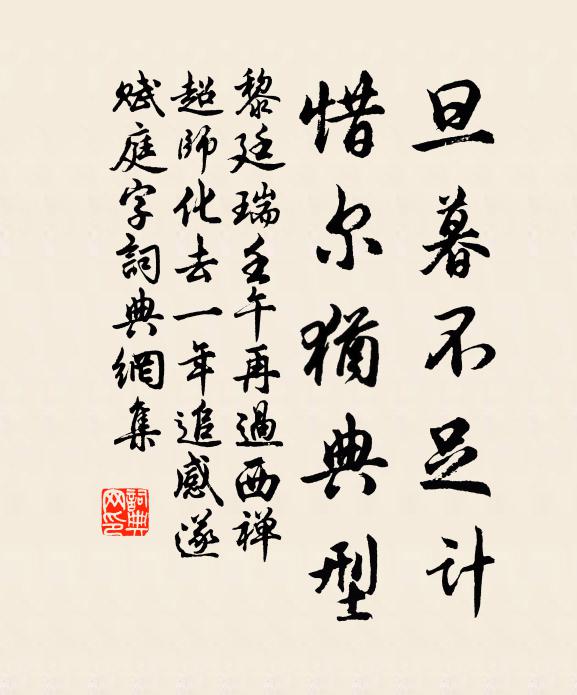 旦暮不足计
惜尔犹典型
黎廷瑞壬午再過西禅
超師化去一年追感遂
赋庭字詞典網集
詞典
网印